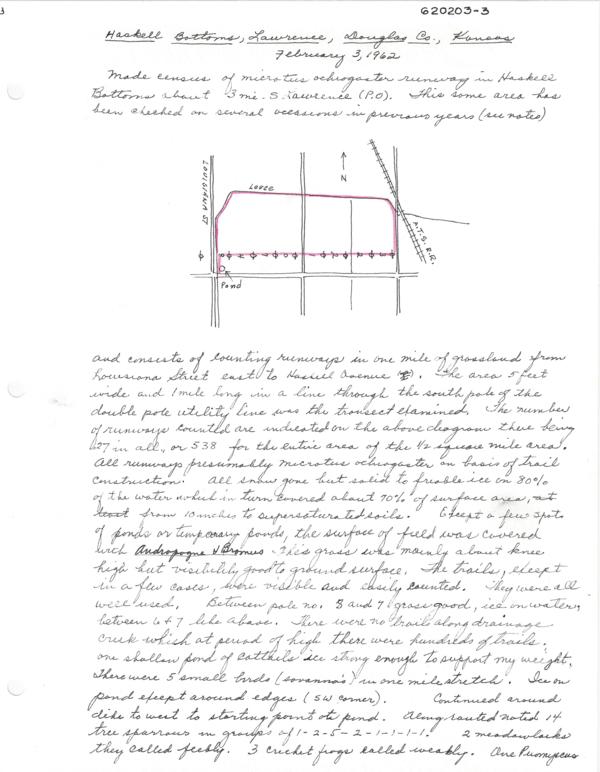 620203-3
Haskell Bottoms, Lawrence, Douglas Co., Kansas
February 3, 1962
Made census of microtus ochrogaster runway in Haskell
Bottoms about 3 mi. S. Lawrence (P.O). This some area has
been checked on several occassions in previous years (see notes)
LOUISIANA ST
LEVEE
N
A.T.S. R.R.
Pond
and consists of counting runways in one mile of grassland from
Louisiana Street east to Haskell Avenue. The area 5 feet
wide and 1 mile long in a line through the south pole of the
double pole utility line was the transect examined. The number
of runways counted are indicated on the above diagram there being
27 in all, or 538 for the entire area of the 1/2 square mile area.
All runways presumably microtus ochrogaster on basis of trail
construction. All snow gone but solid to friable ice on 80%
of the water which in turn covered about 70% of surface area, at
from 10 inches to supersaturated soils. Except a few spots
of ponds or temporary ponds, the surface of field was covered
with Andropogne & Bromus. This grass was mainly about knee
high but visibility good to ground surface. The trails, except
in a few cases, were visible and easily counted. They were all
well used. Between pole no. 8 and 7 grass good, ice on water,
between 6 & 7 like above. There were no trails along drainage
creek which at period of high there were hundreds of trails.
one shallow pond of cattails ice strong enough to support my weight.
There were 5 small birds (savanna's) in one mile stretch. Ice on
pond except around edges (SW corner). Continued around
dike to west to starting point at pond. Along routed noted 14
tree sparrows in groups of 1-2-5-2-1-1-1-1. 2 meadowlarks
they called feebly. 3 cricket frogs called weakly. One Peromyscus